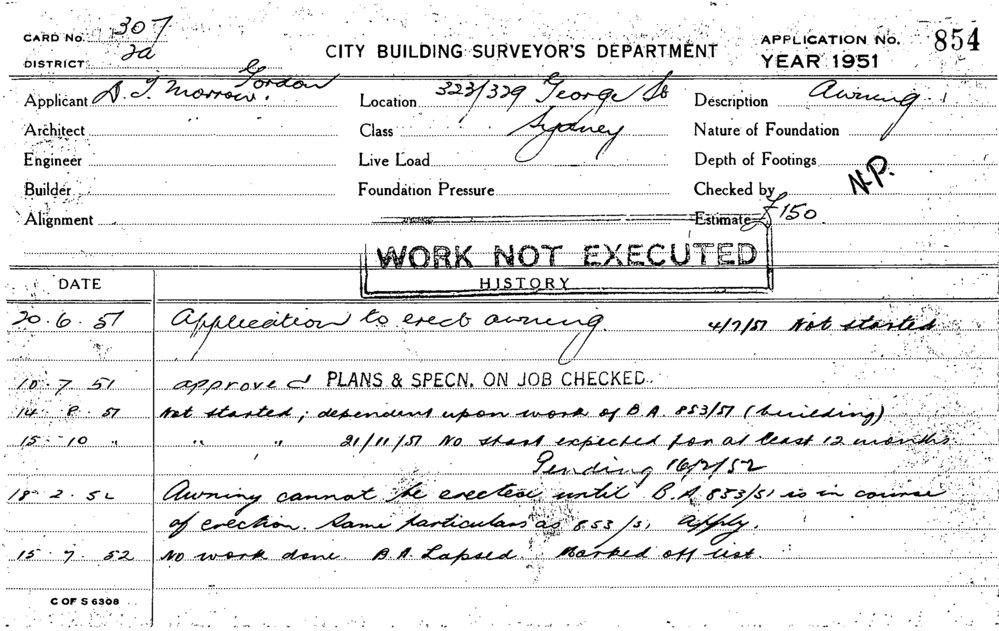 CARD No. 307
DISTRICT 2a
CITY BUILDING SURVEYOR'S DEPARTMENT
APPLICATION No. 854
YEAR 1951
Applicant D. T. Morrow. Gordon
Location 323/329 George St
Sydney
Description Awning
Architect
Class
Nature of Foundation
Engineer
Live Load
Depth of Footings
Builder
Foundation Pressure
Checked by N.P.
Alignment
Estimate £150.
WORK NOT EXECUTED
DATE
HISTORY
20.6.51 Application to erect awning. 4/7/51 Not started
10.7.51 approved PLANS & SPECN. ON JOB CHECKED.
14.8.51 Not started; dependent upon work of B.A. 853/51 (building)
15.10 " " " 21/11/51 No start expected for at least 12 months.
Pending 16/2/52
18.2.52 Awning cannot be erected until B.A. 853/51 is in course
of erection. Same particulars as 853/51 apply.
15.7.52 No work done. B.A. Lapsed. Marked off list.
C OF S 6308